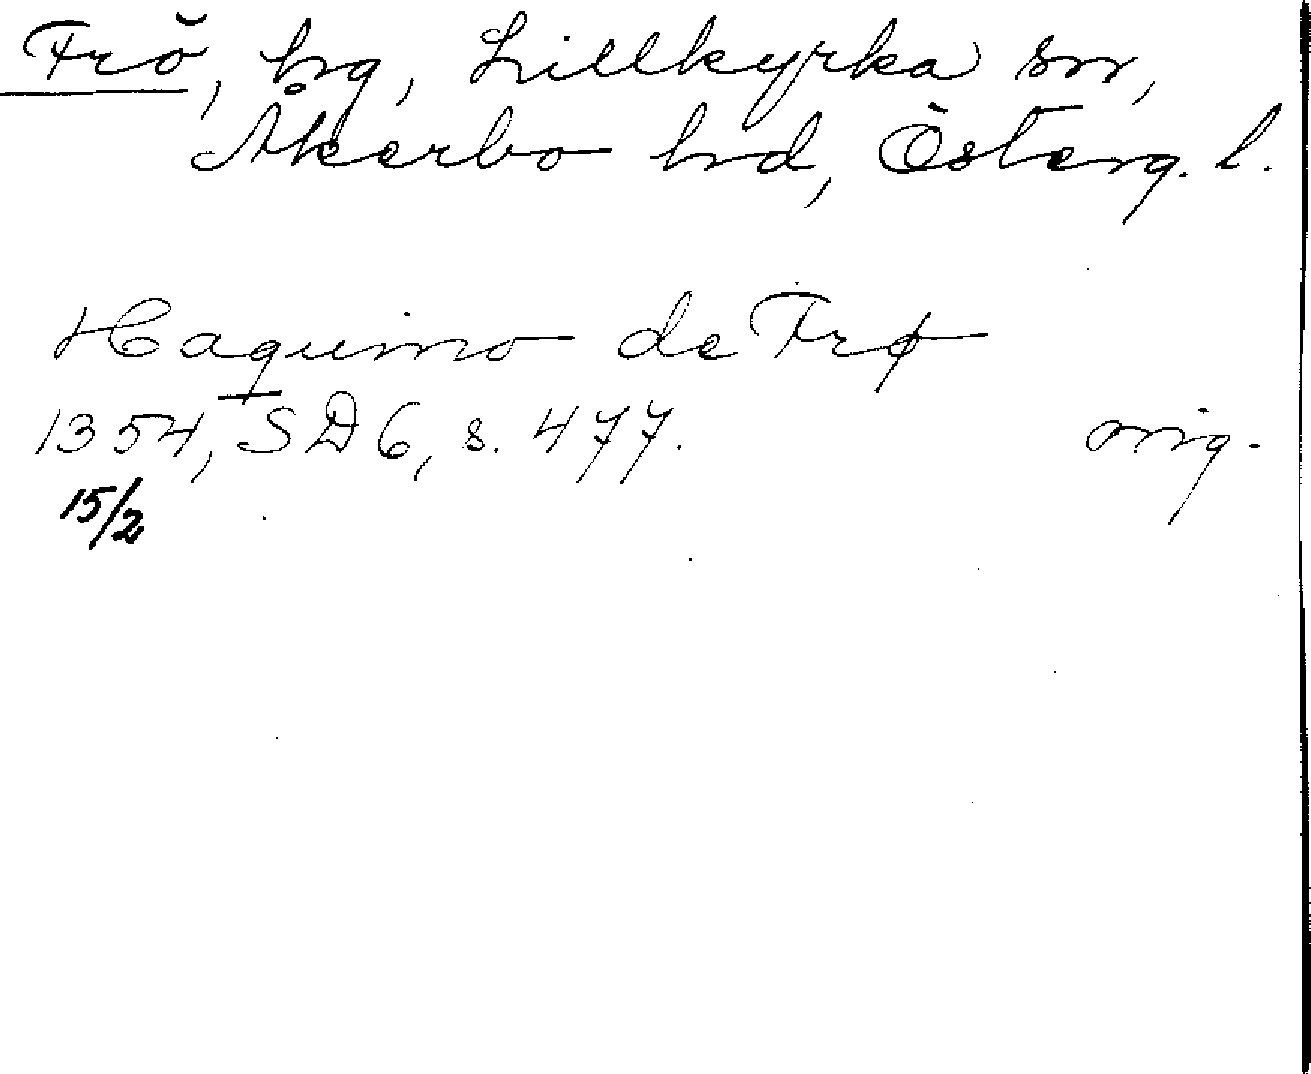 Frö, hg, Lillkyrka sn,
Åkerbo hd, Österg. l.
Haquino de Frø
1354, SD 6, s. 477. orig.
15/2